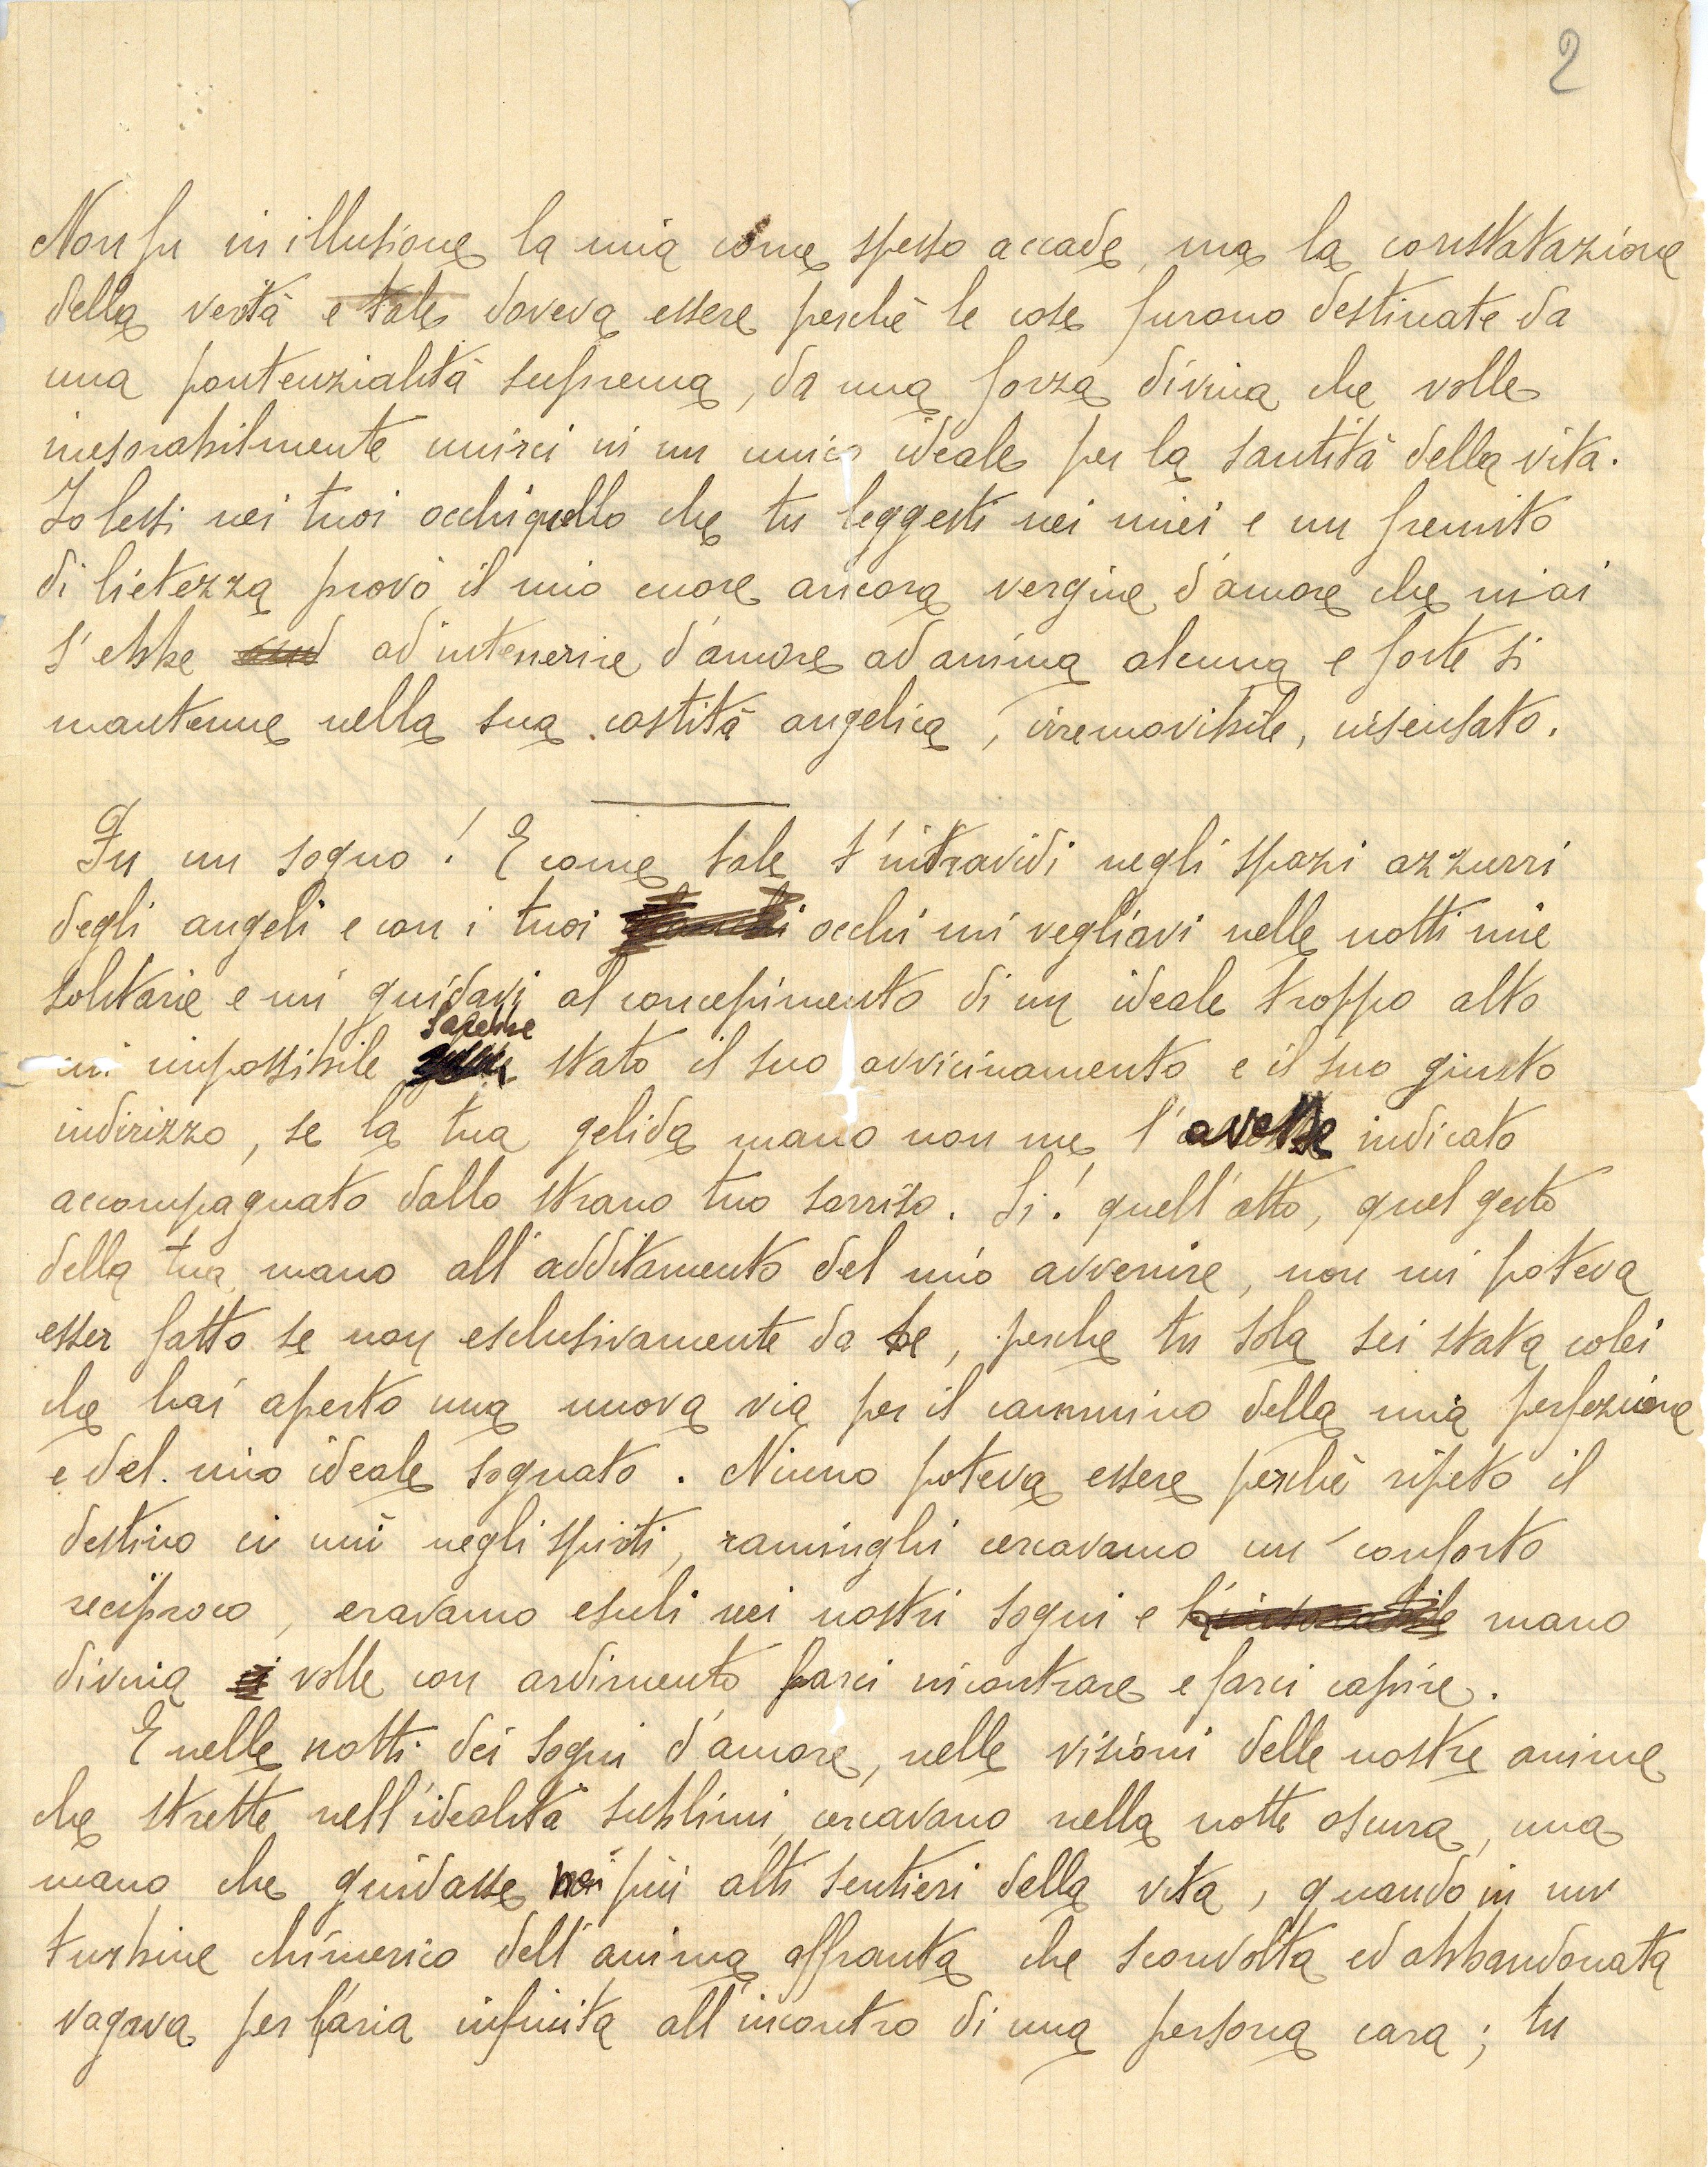 2
Non fu in illusione la mia come spesso accade, ma la constatazione
della verità e tale doveva essere perchè le cose furono destinate da
una pontenzialità suprema, da una forza divina che volle
inesorabilmente unirci in un unico ideale per la santità della vita.
Io lessi nei tuoi occhi quello che tu leggesti nei miei e un fremito
di lietezza provò il mio cuore ancora vergine d'amore che mai
s'ebbe ad intenerire d'amore ad anima alcuna e forte si
mantenne nella sua castità angelica, irremovibile, insensato.
Fu un sogno! E come tale t'intravidi negli spazi azzurri
degli angeli e con i tuoi occhi mi vegliavi nelle notti mie
solitarie e mi guidavi al concepimento di un ideale troppo alto
sarebbe
impossibile stato il suo avvicinamento e il suo giusto
indirizzo, se la tua gelida mano non me l'avesse indicato
accompagnato dallo strano tuo sorriso. Si! quell'atto, quel gesto
della tua mano all'additamento del mio avvenire, non mi poteva
esser fatto se non esclusivamente da te, perche tu sola sei stata colei
che hai aperto una nuova via per il cammino della mia perfezione
e del mio ideale sognato. Niuno poteva essere perchè ripeto il
destino ci unì negli spiriti, raminghi cercavamo un conforto
reciproco, eravamo esuli nei nostri sogni e l'inesorabile mano
divina ci volle con ardimento farci incontrare e farci capire.
E nelle notti dei sogni d'amore, nelle visioni delle nostre anime
che strette nell'idealità sublimi, cercavano nella notte oscura, una
mano che guidasse nei più alti sentieri della vita, quando in un
turbine chimerico dell'anima affranta che sconvolta ed abbandonata
vagava per l'aria infinita all'incontro di una persona cara; tu